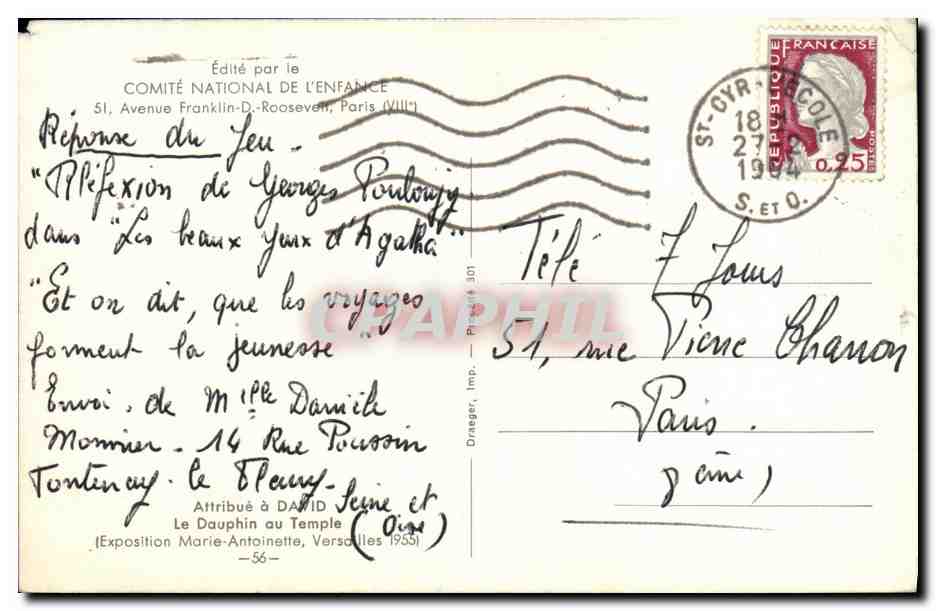 Édité par le
COMITÉ NATIONAL DE L'ENFANCE
51, Avenue Franklin-D.-Roosevelt, Paris (VIIIe)
Réponse du Jeu -
"Réfexion de Georges Pouloujy
dans "Les beaux yeux d'Agatha"
"Et on dit, que les voyages
forment la jeunesse"
Envoi. de Mlle Danièle
Monnier - 14 Rue Poussin
Fontenay. le Fleury -
Seine et
(Oise)
Attribué à DAVID
Le Dauphin au Temple
(Exposition Marie-Antoinette, Versailles 1955)
—56—
Draeger, Imp. - Picseine 301
RÉPUBLIQUE FRANÇAISE
POSTES
0,25
ST-CYR-L'ECOLE
18
27
1964
S. ET O.
Télé 7 Jours
51, rue Pierre Charron
Paris.
8ème)
CPAPHIL